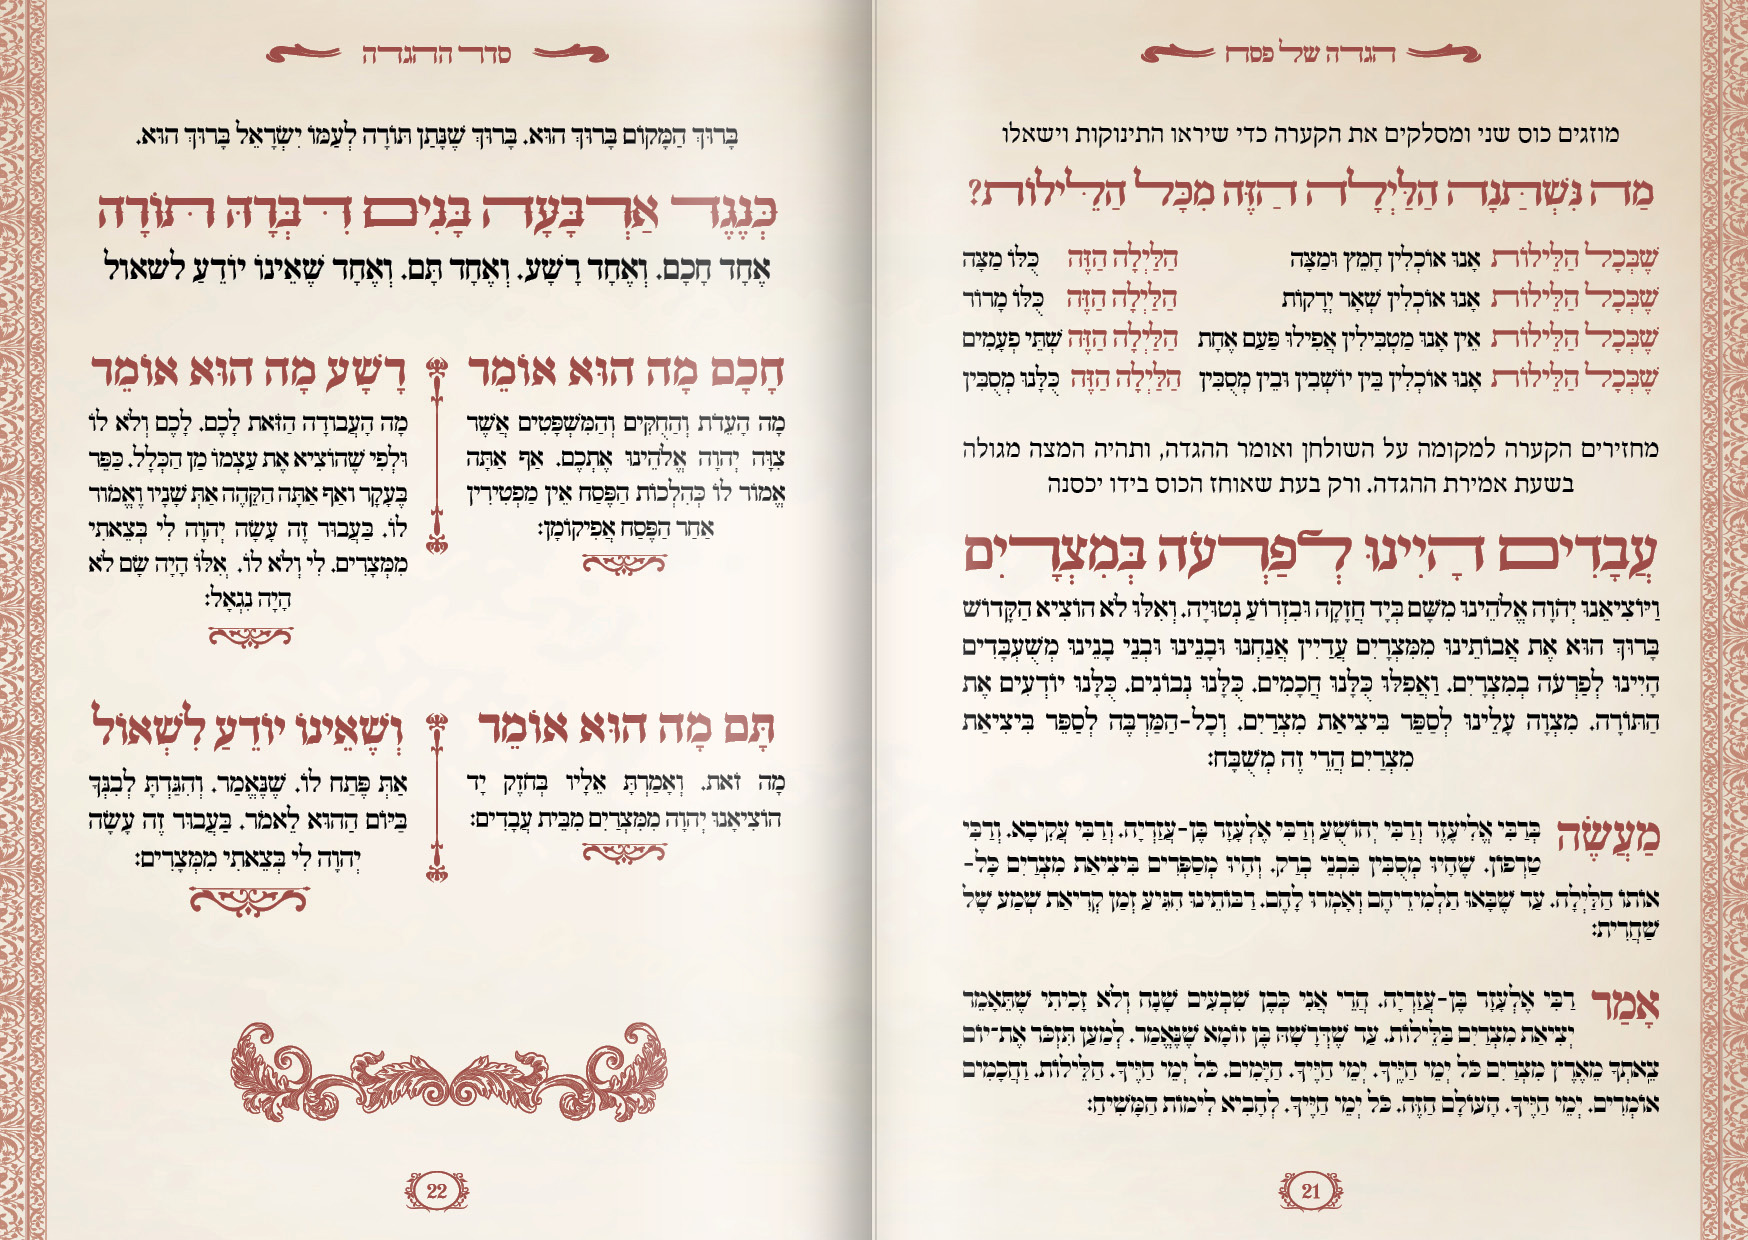 הגדה של פסח
מוזגים כוס שני ומסלקים את הקערה כדי שיראו התינוקות וישאלו
מַה נִּשְׁתַּנָּה הַלַּיְלָה הַזֶּה מִכָּל הַלֵּילוֹת?
שֶׁבְּכָל הַלֵּילוֹת אָנוּ אוֹכְלִין חָמֵץ וּמַצָּה הַלַּיְלָה הַזֶּה כֻּלּוֹ מַצָּה
שֶׁבְּכָל הַלֵּילוֹת אָנוּ אוֹכְלִין שְׁאָר יְרָקוֹת הַלַּיְלָה הַזֶּה כֻּלּוֹ מָרוֹר
שֶׁבְּכָל הַלֵּילוֹת אֵין אָנוּ מַטְבִּילִין אֲפִילוּ פַּעַם אֶחָת הַלַּיְלָה הַזֶּה שְׁתֵּי פְעָמִים
שֶׁבְּכָל הַלֵּילוֹת אָנוּ אוֹכְלִין בֵּין יוֹשְׁבִין וּבֵין מְסֻבִּין הַלַּיְלָה הַזֶּה כֻּלָּנוּ מְסֻבִּין
מחזירים הקערה למקומה על השולחן ואומר ההגדה, ותהיה המצה מגולה
בשעת אמירת ההגדה. ורק בעת שאוחז הכוס בידו יכסנה
עֲבָדִים הָיִינוּ לְפַרְעֹה בְּמִצְרָיִם
וַיּוֹצִיאֵנוּ יְהֹוָה אֱלֹהֵינוּ מִשָּׁם בְּיָד חֲזָקָה וּבִזְרוֹעַ נְטוּיָה. וְאִלּוּ לֹא הוֹצִיא הַקָּדוֹשׁ
בָּרוּךְ הוּא אֶת אֲבוֹתֵינוּ מִמִּצְרָיִם עֲדַיִין אֲנַחְנוּ וּבָנֵינוּ וּבְנֵי בָנֵינוּ מְשֻׁעְבָּדִים
הָיִינוּ לְפַרְעֹה בְמִצְרָיִם. וַאֲפִלּוּ כֻּלָּנוּ חֲכָמִים. כֻּלָּנוּ נְבוֹנִים. כֻּלָּנוּ יוֹדְעִים אֶת
הַתּוֹרָה. מִצְוָה עָלֵינוּ לְסַפֵּר בִּיצִיאַת מִצְרַיִם. וְכָל-הַמַּרְבֶּה לְסַפֵּר בִּיצִיאַת
מִצְרַיִם הֲרֵי זֶה מְשֻׁבָּח:
מַעֲשֶׂה בְּרַבִּי אֱלִיעֶזֶר וְרַבִּי יְהוֹשֻׁעַ וְרַבִּי אֶלְעָזָר בֶּן-עֲזַרְיָה. וְרַבִּי עֲקִיבָא. וְרַבִּי
טַרְפוֹן. שֶׁהָיוּ מְסֻבִּין בִּבְנֵי בְרַק. וְהָיוּ מְסַפְּרִים בִּיצִיאַת מִצְרַיִם כָּל-
אוֹתוֹ הַלַּיְלָה. עַד שֶׁבָּאוּ תַלְמִידֵיהֶם וְאָמְרוּ לָהֶם. רַבּוֹתֵינוּ הִגִּיעַ זְמַן קְרִיאַת שְׁמַע שֶׁל
שַׁחֲרִית:
אָמַר רַבִּי אֶלְעָזָר בֶּן-עֲזַרְיָה. הֲרֵי אֲנִי כְּבֶן שִׁבְעִים שָׁנָה וְלֹא זָכִיתִי שֶׁתֵּאָמֵר
יְצִיאַת מִצְרַיִם בַּלֵּילוֹת. עַד שֶׁדְּרָשָׁהּ בֶּן זוֹמָא שֶׁנֶּאֱמַר. לְמַעַן תִּזְכֹּר אֶת-יוֹם
צֵאתְךָ מֵאֶרֶץ מִצְרַיִם כֹּל יְמֵי חַיֶּיךָ. יְמֵי חַיֶּיךָ. הַיָּמִים. כֹּל יְמֵי חַיֶּיךָ. הַלֵּילוֹת. וַחֲכָמִים
אוֹמְרִים. יְמֵי חַיֶּיךָ. הָעוֹלָם הַזֶּה. כֹּל יְמֵי חַיֶּיךָ. לְהָבִיא לִימוֹת הַמָּשִׁיחַ:
21
סדר ההגדה
בָּרוּךְ הַמָּקוֹם בָּרוּךְ הוּא. בָּרוּךְ שֶׁנָּתַן תּוֹרָה לְעַמּוֹ יִשְׂרָאֵל בָּרוּךְ הוּא.
כְּנֶגֶד אַרְבָּעָה בָּנִים דִּבְּרָה תּוֹרָה
אֶחָד חָכָם. וְאֶחָד רָשָׁע. וְאֶחָד תָּם. וְאֶחָד שֶׁאֵינוֹ יוֹדֵעַ לשאול
חָכָם מָה הוּא אוֹמֵר
מָה הָעֵדֹת וְהַחֻקִּים וְהַמִּשְׁפָּטִים אֲשֶׁר
צִוָּה יְהוָה אֱלֹהֵינוּ אֶתְכֶם. אַף אַתָּה
אֱמוֹר לוֹ כְּהִלְכוֹת הַפֶּסַח אֵין מַפְטִירִין
אַחַר הַפֶּסַח אֲפִיקוֹמָן:
רָשָׁע מָה הוּא אוֹמֵר
מָה הָעֲבוֹדָה הַזֹּאת לָכֶם. לָכֶם וְלֹא לוֹ
וּלְפִי שֶׁהוֹצִיא אֶת עַצְמוֹ מִן הַכְּלָל. כַּפֵּר
בָּעִקָּר וְאַף אַתָּה הַקְהֵה אֶת שִׁנָּיו וֶאֱמוֹר
לוֹ. בַּעֲבוּר זֶה עָשָׂה יְהוָה לִי בְּצֵאתִי
מִמִּצְרָיִם. לִי וְלֹא לוֹ. אִלּוּ הָיָה שָׁם לֹא
הָיָה נִגְאָל:
תָּם מָה הוּא אוֹמֵר
מַה זֹאת. וְאָמַרְתָּ אֵלָיו בְּחֹזֶק יָד
הוֹצִיאָנוּ יְהוָה מִמִּצְרַיִם מִבֵּית עֲבָדִים:
וְשֶׁאֵינוֹ יוֹדֵעַ לִשְׁאוֹל
אַתְּ פְּתַח לוֹ. שֶׁנֶּאֱמַר. וְהִגַּדְתָּ לְבִנְךָ
בַּיּוֹם הַהוּא לֵאמֹר. בַּעֲבוּר זֶה עָשָׂה
יְהוָה לִי בְּצֵאתִי מִמִּצְרָיִם:
22